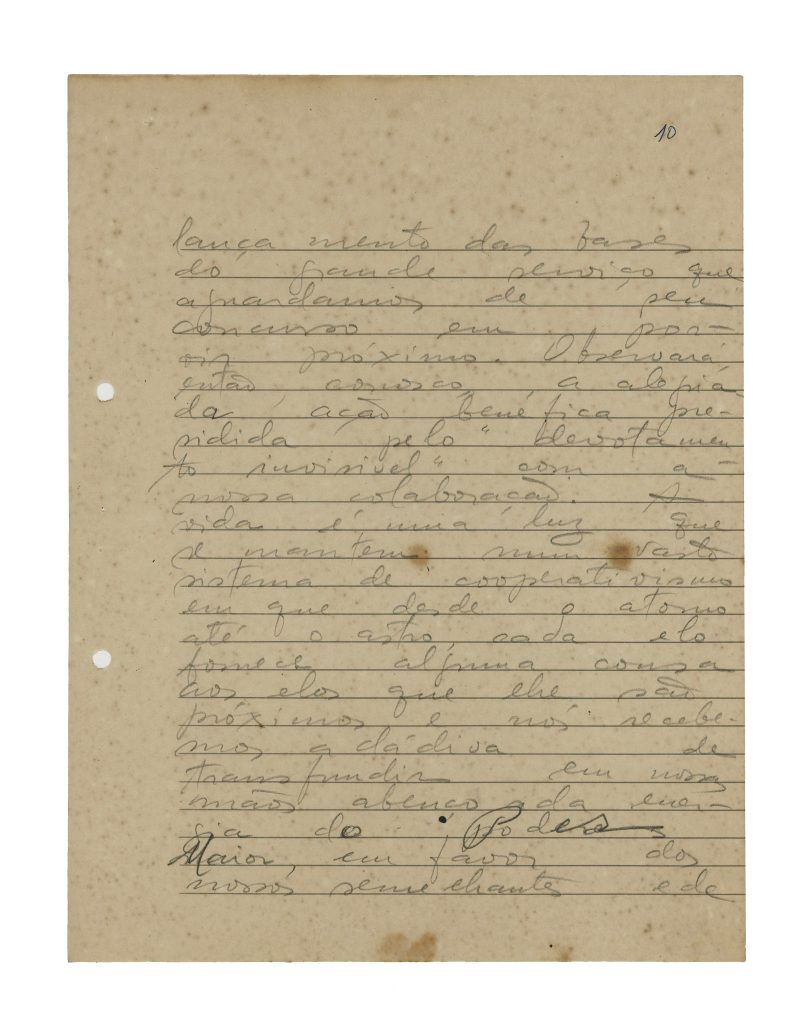 10
lança mento das bases
do grande serviço que
aguardamos de seu
concurso em por-
vir próximo. Observará
então conosco, a
da ação benéfica pre-
sidida pelo "devotamen
to invisivel" com a-
nossa colaboração. A
vida é uma luz que
se mantem num vasto
sistema de cooperativismo
em que desde o atomo
até o astro, cada elo
fornece alguma cousa
aos elos que lhe são
próximos e nós recebe-
mos a dádiva de
transfundir em nossas
mãos abençoada ener-
gia do Poder
Maior, em favor dos
nossos semelhantes e de